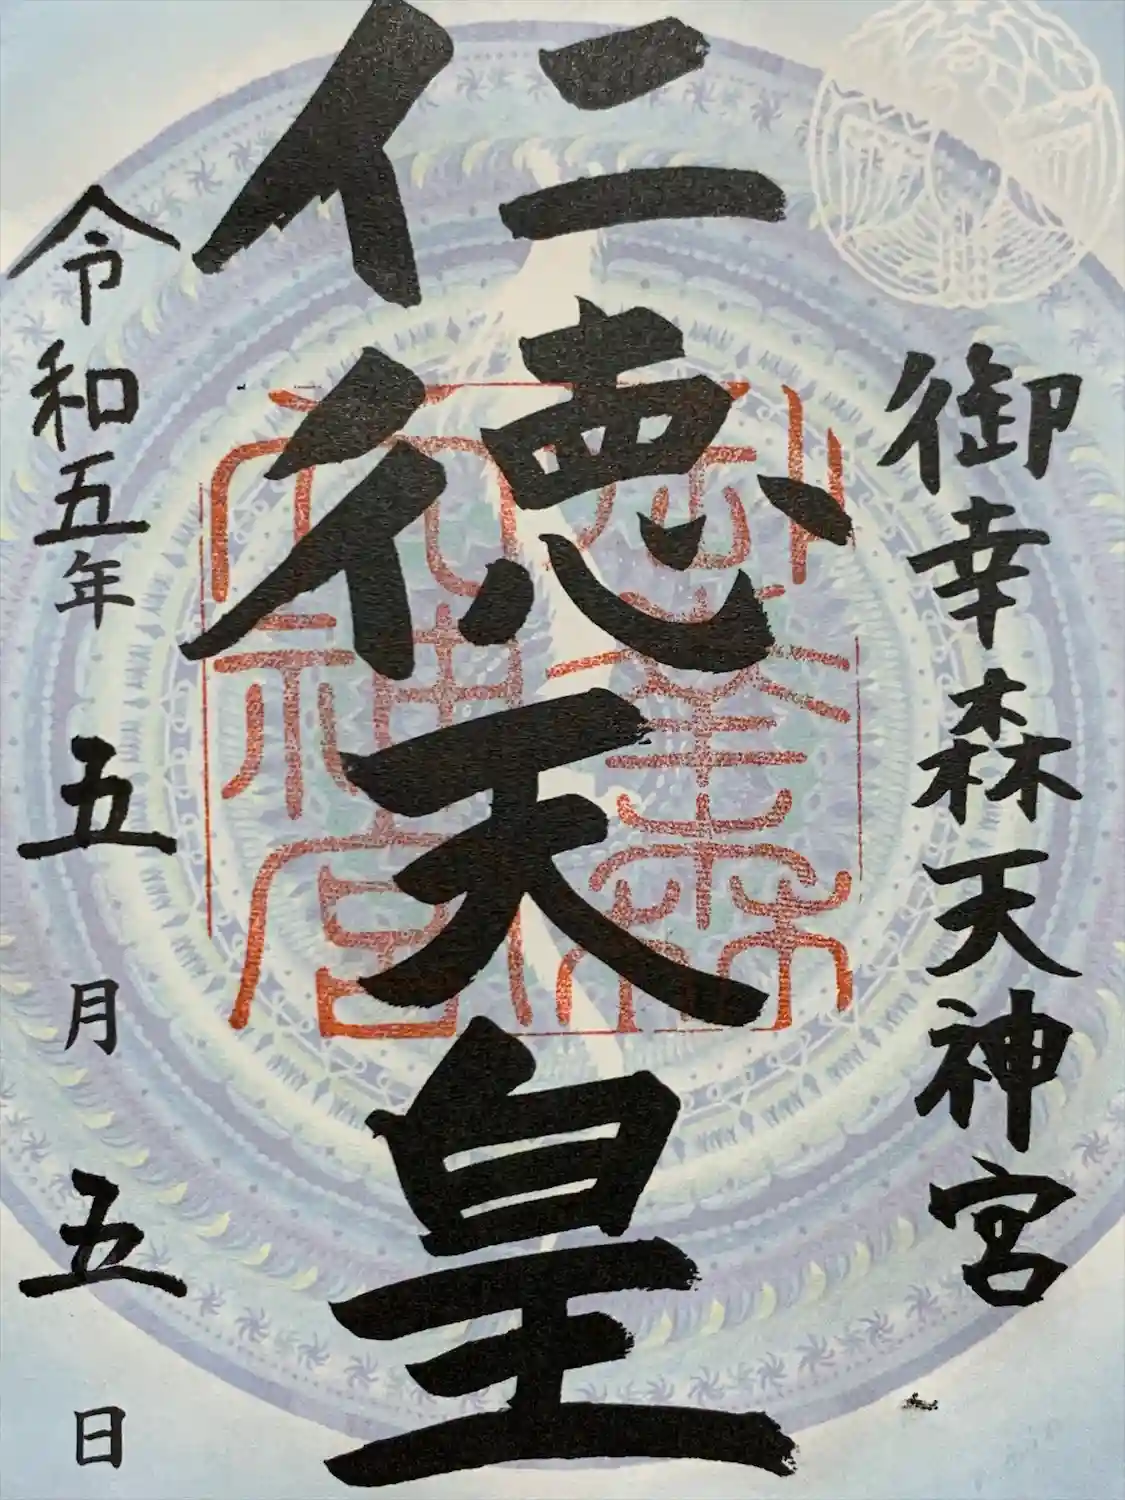 御幸森天神宮
仁徳天皇
御幸森
天神宮
令和五年五月五日